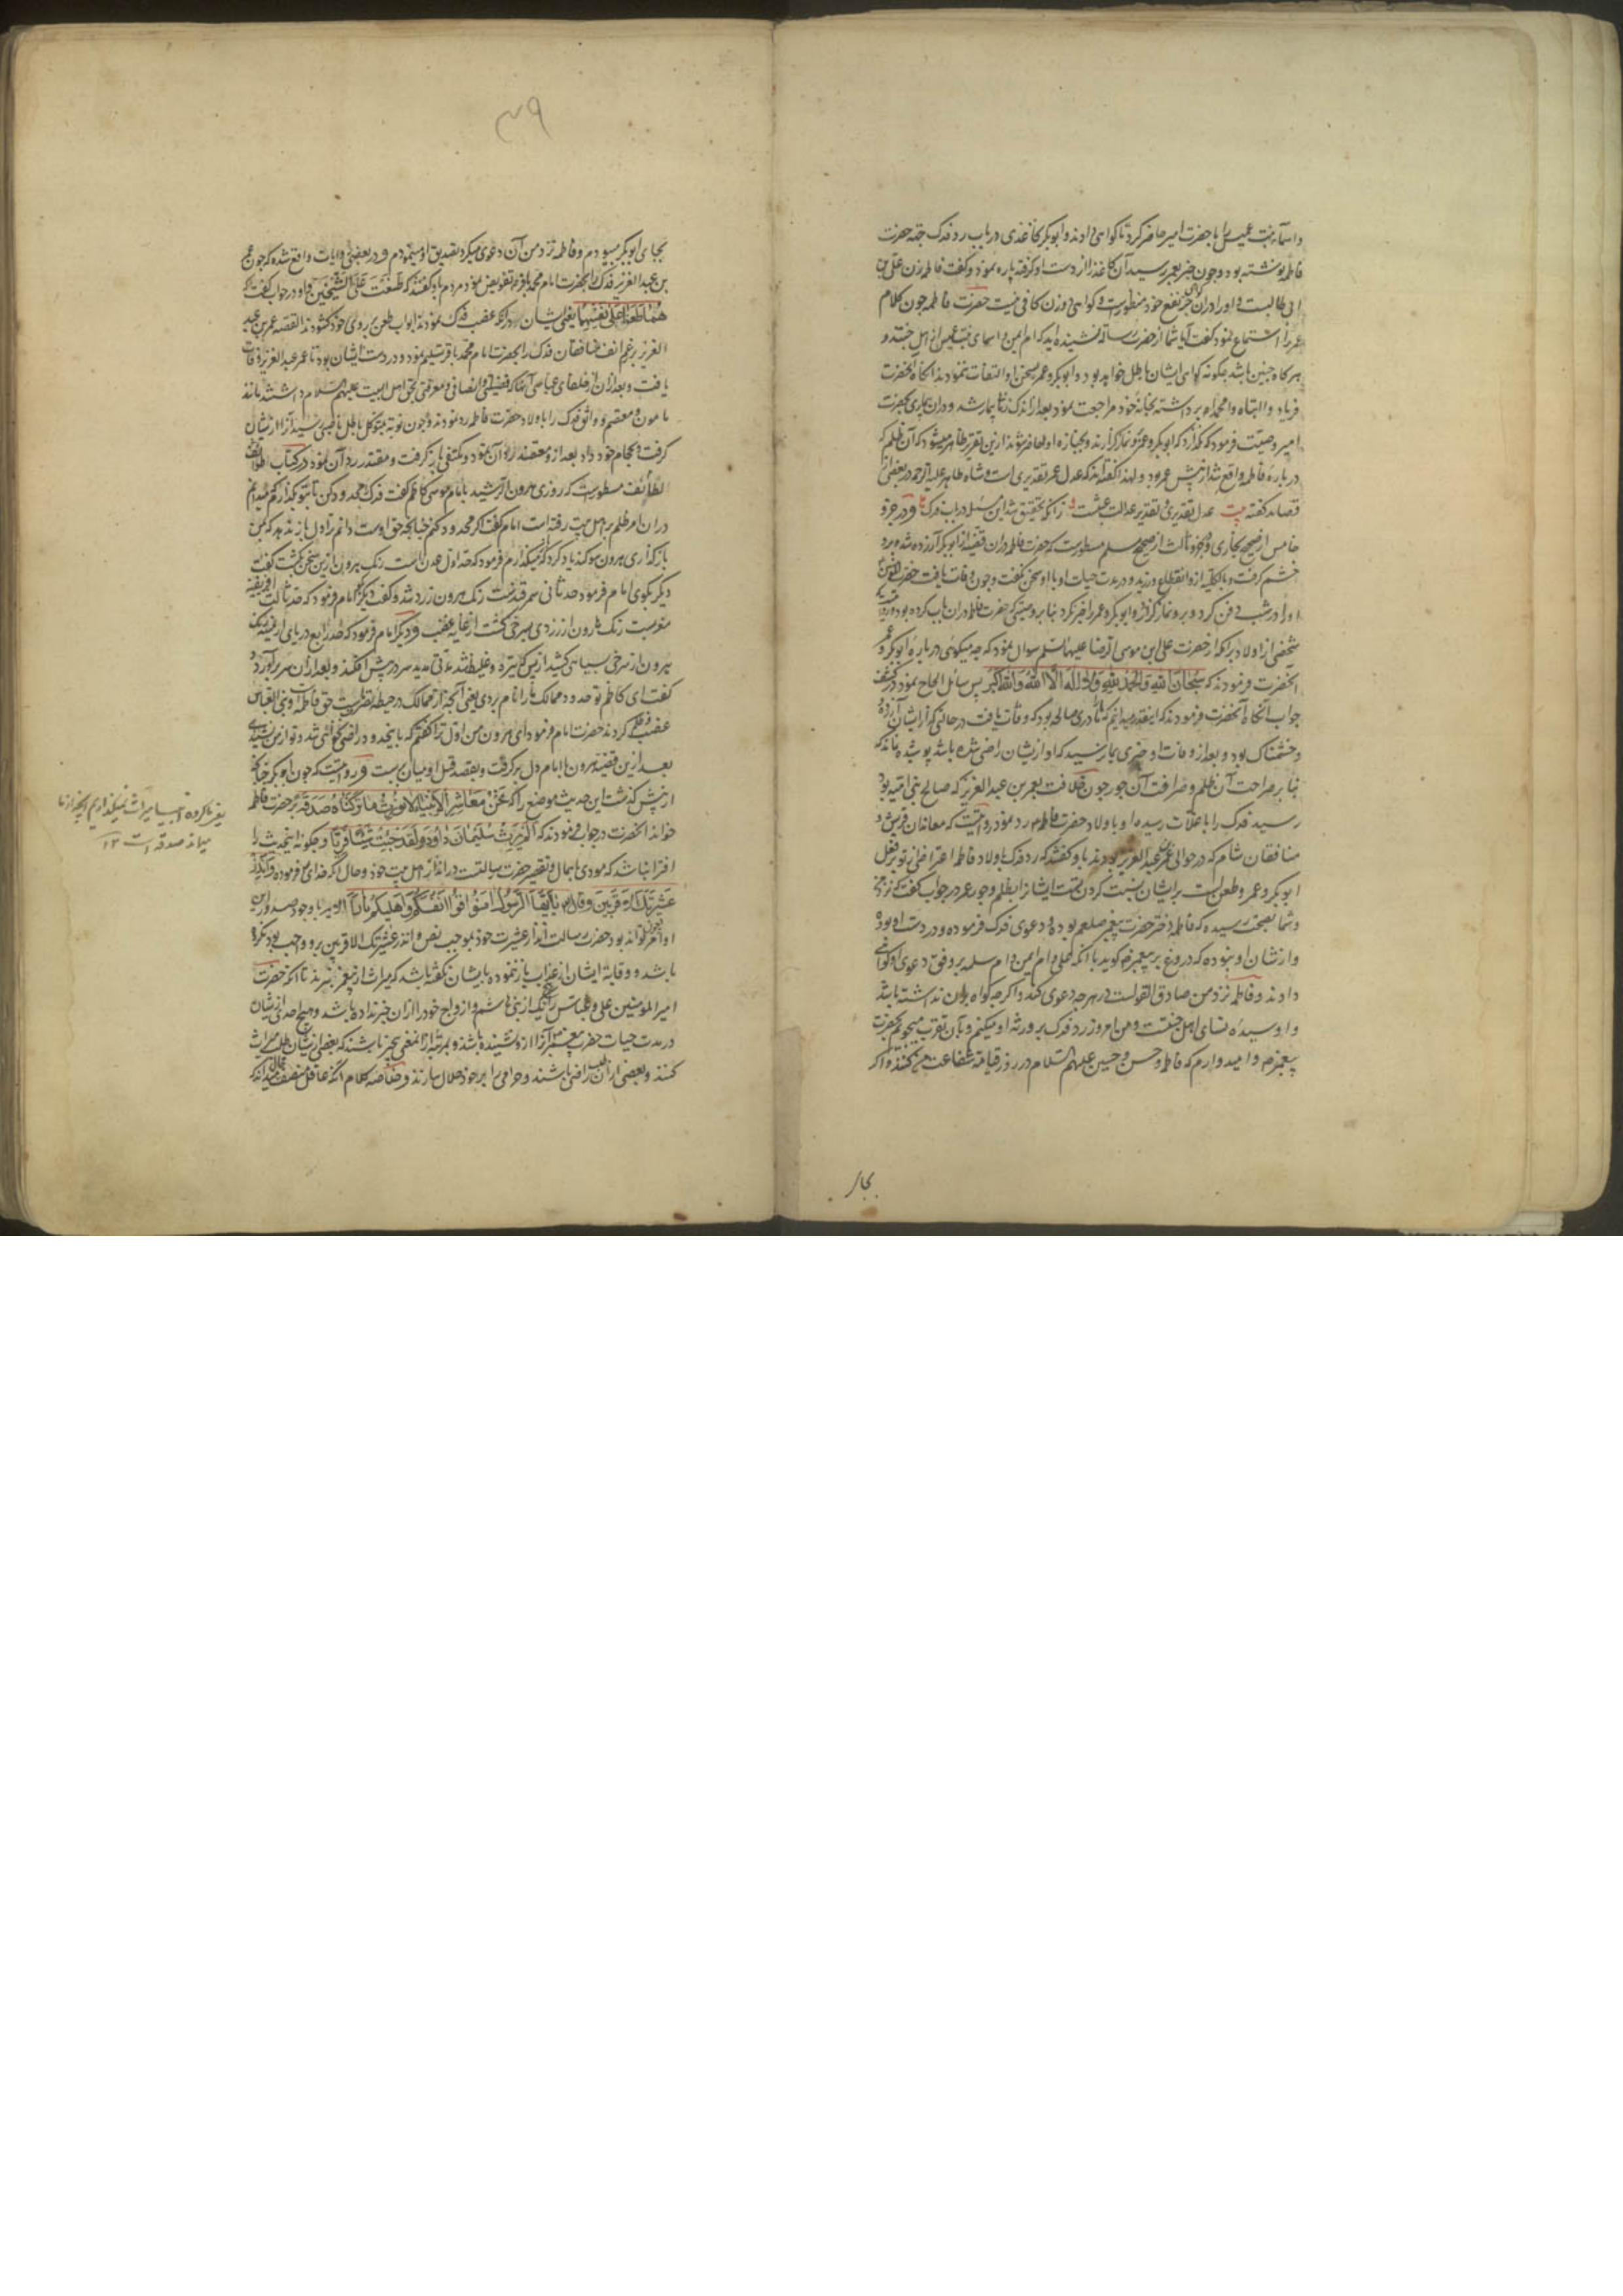 واسماء بنت عمیس را با حضرت امیر حاضر کرد تا کواهی دادند و ابوبکر کاغذی در باب رد فدک جهة حضرت
فاطمه نوشته بود و چون خبر بعمر رسید آن کاغذ را از دست او کرفته پاره نمود و کفت فاطمه زن علی بن
ابی طالبست و او را درین جر نفع خود منظورست و کواهی دو زن کافی نیست حضرت فاطمه چون کلام
عمر را استماع نمود کفت آیا شما از حضرت رسالة نشنیده اید که ام ایمن و اسمای بنت عمیس از اهل جنتند و
هر کاه چنین باشد چکونه کواهی ایشان باطل خواهد بود و ابوبکر و عمر بسخن او التفات ننمودند انکاه انحضرت
فریاد وا ابتاه وا محمداه برداشته بخانه خود مراجعت نمود بعد از اندک زمانی بیمار شد و در آن بیماری بحضرت
امیر وصیت فرمود که نکذارد که ابوبکر و عمر برو نماز کزارند و بجنازه او حاضر شوند ازین تقریر ظاهر میشود که آن ظلم که
درباره فاطمه واقع شد از پیش عمر بود و لهذا کفته اند که عدل عمر تقدیری است و شاه طاهر علیه الرحمه در بعضی از
قصاید کفته بیت عدل تقدیری و تقدیر عدالت عبثست زانکه تحقیق شد این مسئله در باب فدک و در جزو
خامس از صحیح بخاری و جزو ثالث از صحیح مسلم مسطورست که حضرت فاطمه در آن قضیه از ابوبکر آزرده شد و برو
خشم کرفت و بالکلیه ازو انقطاع ورزید و در مدت حیات او با او سخن نکفت و چون وفات یافت حضرت امیر
او را در شب دفن کرد و برو نماز کزارد و ابوبکر و عمر را خبر نکرد بنا بر وصیتی که حضرت فاطمه در آن باب کرده بود
شخصی از اولاد برامکه از حضرت علی ابن موسی الرضا علیهما السلم سوال نمود که چه میکوئی درباره ابوبکر و عمر
انحضرت فرمودند که سبحان الله والحمد لله ولا اله الا الله والله اکبر پس سائل الحاح نمود در کشف
جواب انکاه انحضرت فرمودند که اینقدر میدانم که ما را مادری صالحه بود که وفات یافت در حالتی که از ایشان آزرده
و خشمناک بود و بعد از وفات او خبری بما نرسید که او از یشان راضی شده باشد پوشیده نماند که
بنا بر صراحت آن ظلم و صرافت آن جور چون خلافت بعمر بن عبد العزیز که صالح بنی امیه بود
رسید فدک را با غلات رسیده او باولاد حضرت فاطمه رد نمود و روایتست که معاندان قریش و
منافقان شام که در حوالی عمر بن عبد العزیز بودند باو کفتند که رد فدک باولاد فاطمه اعتراض از تو بر فعل
ابوبکر و عمر و طعن است بر ایشان و نسبت کردن تست ایشانرا بظلم و جور عمر در جواب کفت که نزد من
و شما بصحت رسیده که فاطمه دختر حضرت پیغمبر صلعم بوده و دعوی فدک فرموده و در دست او بود
و از شان او نبوده که دروغ بر پیغمبر کوید با انکه علی و ام ایمن و ام سلمه بر وفق دعوی او کواهی
دادند و فاطمه نزد من صادق القولست در هر چه دعوی کند و اکر چه کواه بر آن نداشته باشد
و او سیده نسای اهل جنتست و من امروز رد فدک بر ورثه او میکنم و بآن تقرب میجویم بحضرت
پیغمبر و امیدوارم که فاطمه و حسن و حسین علیهم السلام در روز قیامة شفاعت من کنند و اکر
بجای
۳۹
بجای ابوبکر میبودم و فاطمه نزد من آن دعوی میکرد تصدیق او مینمودم و در بعضی روایات واقع شده که چون عمر
بن عبد العزیز فدک را بحضرت امام محمد باقر تفویض نمود مردم باو کفتند که طعنت علی الشیخین و او در جواب کفت که
هما طعنا علی نفسهما یعنی ایشان بواسطه غصب فدک نمودند ابواب طعن بر روی خود کشودند القصه عمر بن عبد
العزیز برغم انف منافقان فدک را بحضرت امام محمد باقر تسلیم نمود و در دست ایشان بود تا عمر عبد العزیز وفات
یافت و بعد از آن از خلفای عباسی آنها که فضیلتی و انصافی و معرفتی بحق اهل البیت علیهم السلام داشتند مانند
مامون و معتصم و واثق فدک را باولاد حضرت فاطمه رد نمودند و چون نوبة بمتوکل باطل ناصبی رسید آنرا از یشان
کرفت و بحجام خود داد بعد ازو معتضد رد آن نمود و مکتفی باز کرفت و مقتدر رد آن نمود و در کتاب طوائف
لطائف مسطورست که روزی هرون الرشید با امام موسی کاظم کفت فدک را حد کن تا بتو بکذارم که میدانم
در آن امر ظلم بر اهل بیت رفته است امام کفت اکر محدود کنم چنانچه حق اوست دانم ترا دل باز ندهد که بمن
باز کذاری هرون سوکند یاد کرد که میکذارم فرمود که حد اول عدن است رنک هرون ازین سخن بکشت کفت
دیکر بکوی امام فرمود حد ثانی سمرقندست رنک هرون زرد شد و کفت دیکر امام فرمود که حد ثالث افریقیه
مغربست رنک هارون از زردی بسرخی کشت از غایة غضب و دیکر امام فرمود که حد رابع دریای ارمنیه رنک
هرون از سرخی بسیاهی کشید از پس تیره و غلیظ شد مدتی مدید سر در پیش افکند و بعد از آن سر بر آورد و
کفت ای کاظم تو حدود ممالک ما را نام بردی یعنی آنچه از ممالک در حیطه تصرف ماست حق فاطمه است و بنی العباس
غصب و ظلم کردند حضرت امام فرمود ای هرون من اول ترا کفتم که باینحدود راضی نخواهی شد و تو از من نشنیدی
بعد ازین قضیه هرون با امام دل بر کرفت و بقصد قتل او میان بربست و روایتست که چون ابوبکر چنانکه
از پیش کذشت این حدیث موضوع را که نحن معاشر الانبیاء لا نورث ما ترکناه صدقة بر حضرت فاطمه
خواند انحضرت در جواب فرمودند که الم یرث سلیمان داود ولقد جئت شیئا فریا و چکونه اینحدیث را
افترا نباشد که مودی باهمال و تقصیر حضرت رسالتست در انذار اهل بیت خود و حال آنکه خدای فرموده وانذر
عشیرتک الاقربین وقال یا ایها الذین امنوا قوا انفسکم واهلیکم نارا الایه با وجود صدور این
اوامر چون تواند بود حضرت رسالت انذار عشیرت خود بموجب نص وانذر عشیرتک الاقربین برو واجب بود نکرده
باشد و وقایة ایشان از عذاب باز ننموده بایشان نکفته باشد که میراث از پیغمبر نبرند تا آنکه حضرت
امیر المومنین علی و عباس و دیکر از بنی هاشم و ازواج خود را از آن خبر نداده باشد و هیچ احدی از یشان
در مدت حیات حضرت پیغمبر آنرا ازو نشنیده باشند و بمرتبه از انمعنی بیخبر باشند که بعضی از یشان طلب میراث
کنند و بعضی از آن طلب راضی باشند و حرامی را بر خود حلال سازند و خلاصه کلام آنکه عاقل منصف میداند که
یعنی ما کروه انبیا میراث نمیکذاریم آنچه از ما
میماند صدقه است ۱۲